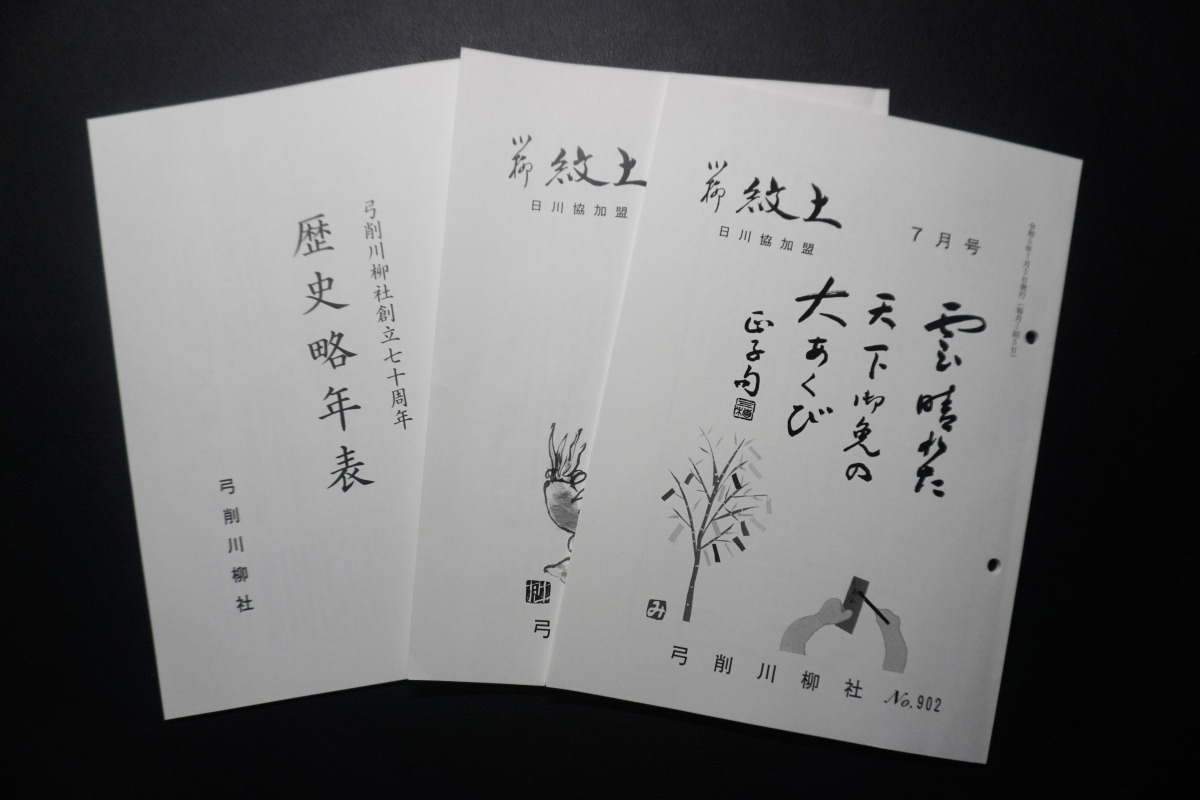 弓削川柳社創立七十周年
歴史略年表
弓削川柳社
川柳 紋土
日川協加盟
弓
川柳 紋土
日川協加盟
7月号
雲晴れた
天下御免の
大あくび
正子句
み
弓削川柳社 No.902